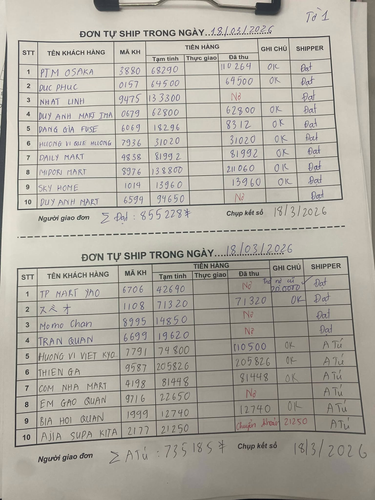 Tờ 1
ĐƠN TỰ SHIP TRONG NGÀY 18/03/2026
STT TÊN KHÁCH HÀNG MÃ KH TIỀN HÀNG GHI CHÚ SHIPPER
Tạm tính Thực giao Đã thu
1 PTM OSAKA 3880 68290 110264 OK Đạt
2 DUC PHUC 0157 64500 64500 OK Đạt
3 NHAT LINH 9475 133300 Nợ Đạt
4 DUY ANH MART 0679 62800 62800 OK Đạt
5 DANG GIA FUSE 6069 18296 8312 OK Đạt
6 HUONG VI QUE HUONG 7936 31020 31020 OK Đạt
7 DAILY MART 9858 81992 81992 OK Đạt
8 MIDORI MART 8976 138800 211060 OK Đạt
9 SKY HOME 1014 13960 13960 OK Đạt
10 DUY ANH MART 6594 94650 Nợ Đạt
Người giao đơn Σ Đạt: 855228¥ Chụp kết sổ 18/3/2026
ĐƠN TỰ SHIP TRONG NGÀY 18/03/2026
STT TÊN KHÁCH HÀNG MÃ KH TIỀN HÀNG GHI CHÚ SHIPPER
Tạm tính Thực giao Đã thu
1 TP MART YAO 6706 42690 Nợ Đạt
2 1108 71320 71320 OK Đạt
3 Momo Chan 8995 14850 Nợ Đạt
4 TRAN QUAN 6699 19620 Nợ Đạt
5 HUONG VI VIET KYO 7791 74800 110500 OK A Tú
6 THIEN GA 9587 205826 205826 OK A Tú
7 COM NHA MART 4198 81448 81448 OK A Tú
8 EM GAO QUAN 9716 22650 Nợ A Tú
9 BIA HOI QUAN 1999 12740 12740 OK A Tú
10 AJIA SUPA KITA 2177 21250 chuyển khoản 21250 A Tú
Người giao đơn Σ A Tú: 735185¥ Chụp kết sổ 18/3/2026